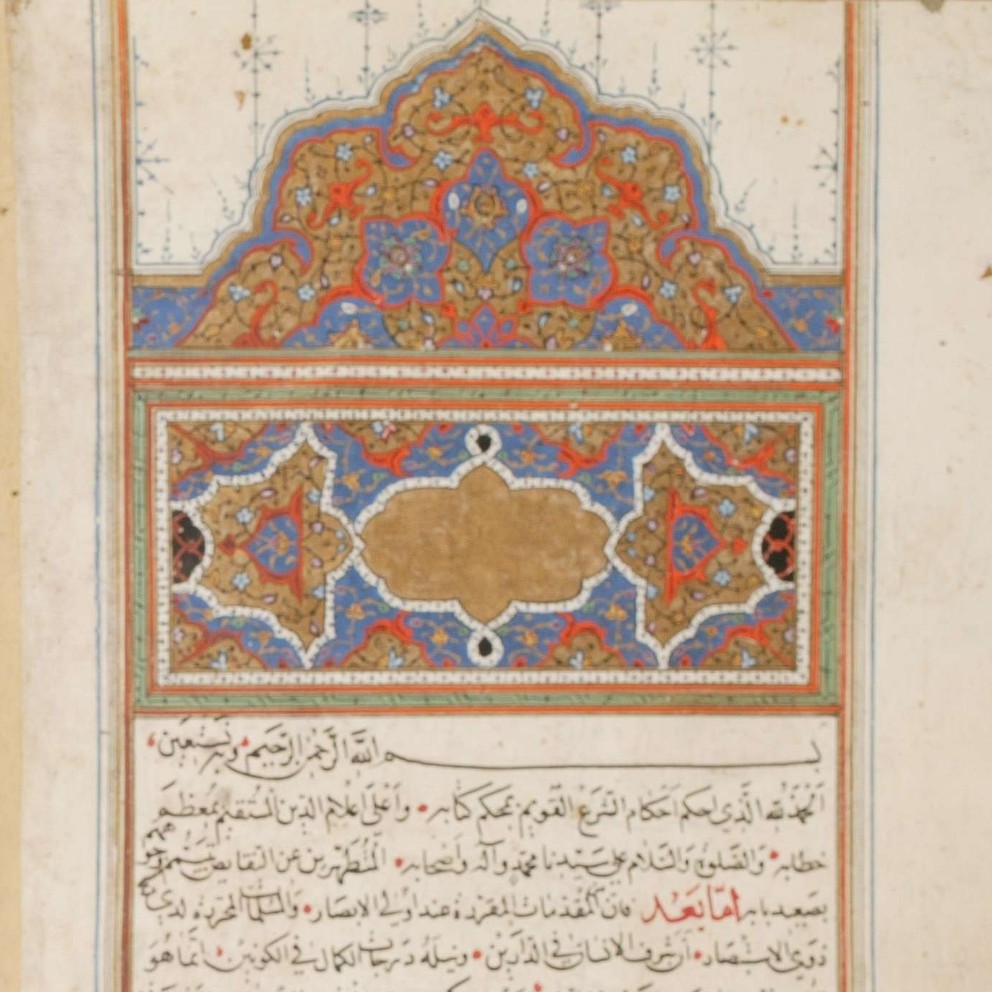 بسم الله الرحمن الرحيم وبه نستعين
الحمد لله الذي احكم احكام الشرع القويم بمحكم كتابه وأعلى اعلام الدين المستقيم بمعظم
خطابه والصلوة والسلام على سيدنا محمد وآله وأصحابه المتطهرين عن النقايص
بصعيد بابه امّا بعد فان المقدمات المقررة عند أولي الابصار والمسلمات المحررة لدى
ذوي الاستبصار أن شرف الانسان في الدارين ونيله درجات الكمال في الكونين انما هو